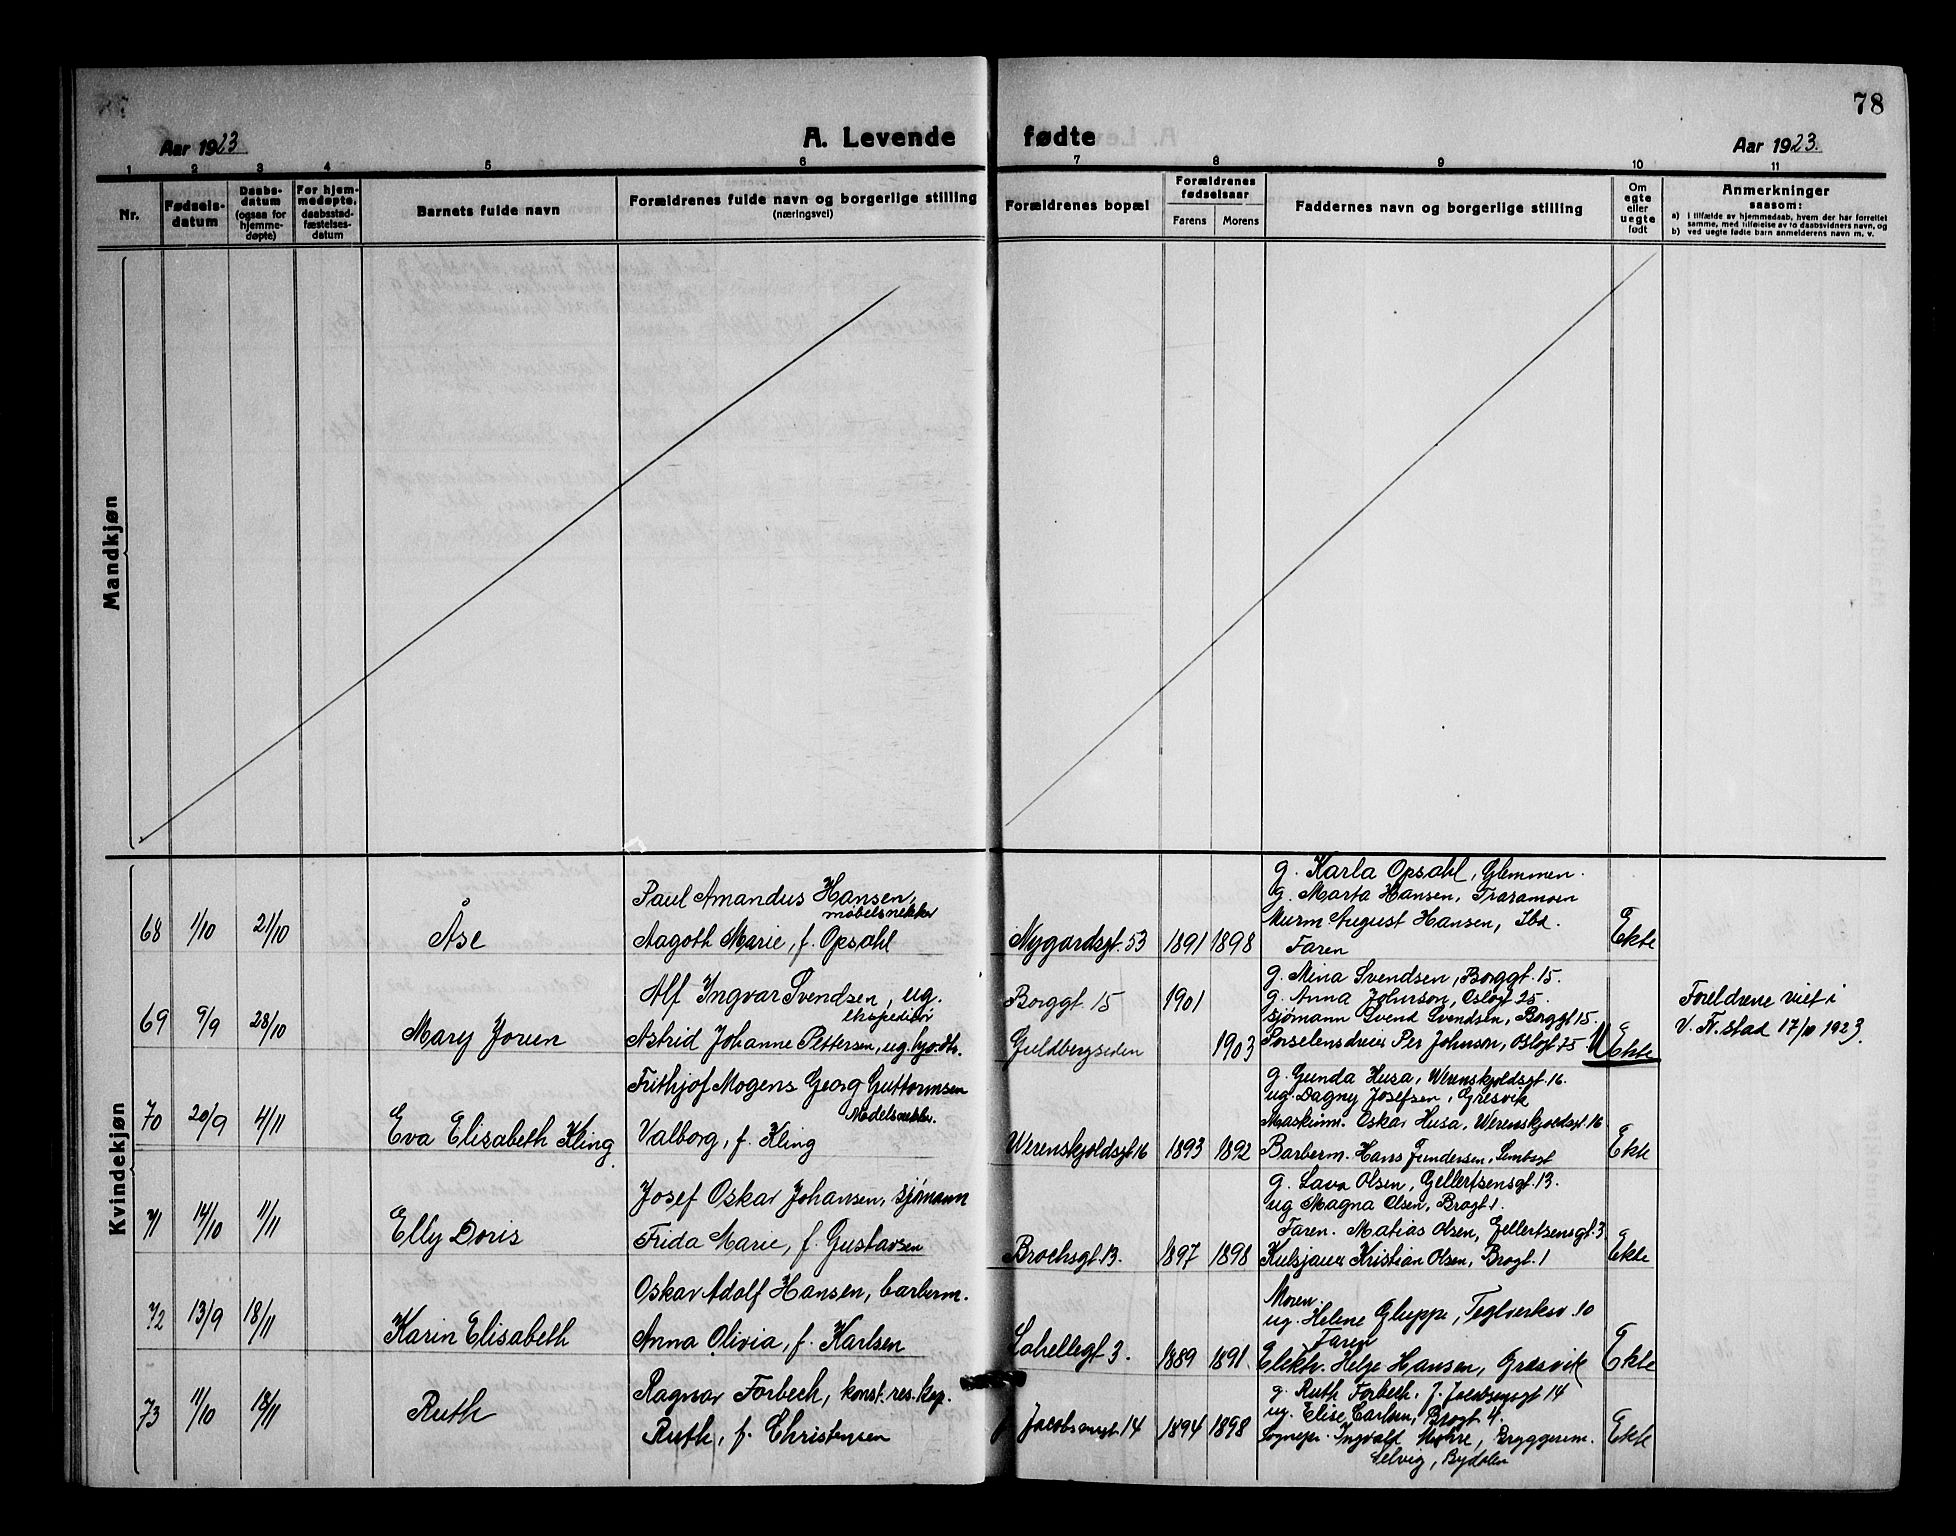 78
A. Levende fødte
Aar 1923
Aar 1923.
1 2 3 4 5 6 7 8 9 10 11
Nr.
Fødsels-
datum
Daabs-
datum
(ogsaa for
hjemme-
døpte)
For hjem-
medøpte,
daabsstad-
fæstelses-
datum
Barnets fulde navn
Forældrenes fulde navn og borgerlige stilling
(næringsvei)
Forældrenes bopæl
Forældrenes
fødselsaar
Farens Morens
Faddernes navn og borgerlige stilling
Om
egte
eller
uegte
født
Anmerkninger
saasom:
a) i tilfælde av hjemmedaab, hvem der har forrettet
samme, med tilføielse av to daabsvidners navn, og
b) ved uegte fødte barn anmelderens navn m. v.
Mandkjøn
Kvindekjøn
68 1/10 21/10 Åse
Paul Amandus Hansen,
møbelsnekker
Aagoth Marie, f. Opsahl
Nygardsgt. 53 1891 1898
g. Karla Opsahl, Glemmen.
g. Marta Hansen, Traramoen
Murm August Hansen, Ibd.
Faren
Ekte
69 9/9 28/10 Mary Jorun
Alf Ingvar Svendsen, ug.
ekspeditør
Astrid Johanne Pettersen, ug. hjv. dtr.
Borggt. 15 1901
Guldbergsiden 1903
g. Mina Svendsen, Borggt. 15.
g. Anna Johnson, Oslogt 25.
sjømann Svend Svendsen, Borggt 15.
Porselensdreier Per Johnson, Oslogt 25.
U Ekte
Foreldrene viet i
V. Fr.stad 17/11 1923.
70 20/9 4/11 Eva Elisabeth Kling
Frithjof Mogens Georg Guttormsen
Modelsnekker.
Valborg, f. Kling
Werenskjoldsgt 16 1893 1892
g. Gunda Husa, Werenskjoldsgt 16.
ug. Dagny Josefsen, Gresvik
Maskinm. Oskar Husa, Werenskjoldsgt. 16
Barberm. Hans Gundersen, Lembsgt
Ekte
71 14/10 11/11 Elly Doris
Josef Oskar Johansen, sjømann
Frida Marie, f. Gustavsen
Brochsgt. 13. 1897 1898
g. Lava Olsen, Gellertsensgt. 13.
ug Magna Olsen, Brogt 1.
Faren. Matias Olsen, Gellertsensgt. 3
Kulsjauer Kristian Olsen, Brogt. 1
Ekte
72 13/9 18/11 Karin Elisabeth
Oskar Adolf Hansen, barberm.
Anna Olivia, f. Karlsen
1889 1891.
Moren.
ug. Helene Gluppe, Teglverksv. 10
Faren
Elektr. Helge Hansen, Gresvik
Ekte
73 11/10 18/11 Ruth
Ragnar Forbech, konst. res. kap.
Ruth, f. Christensen
Jacobsensgt. 14 1894 1898
g. Ruth Forbech, J. Jacobsensgt 14
ug. Elise Carlsen, Brogt 4.
Sognepr. Ingvald Mohre, Bryggerim.
Selvig, Bydalen
Ekte